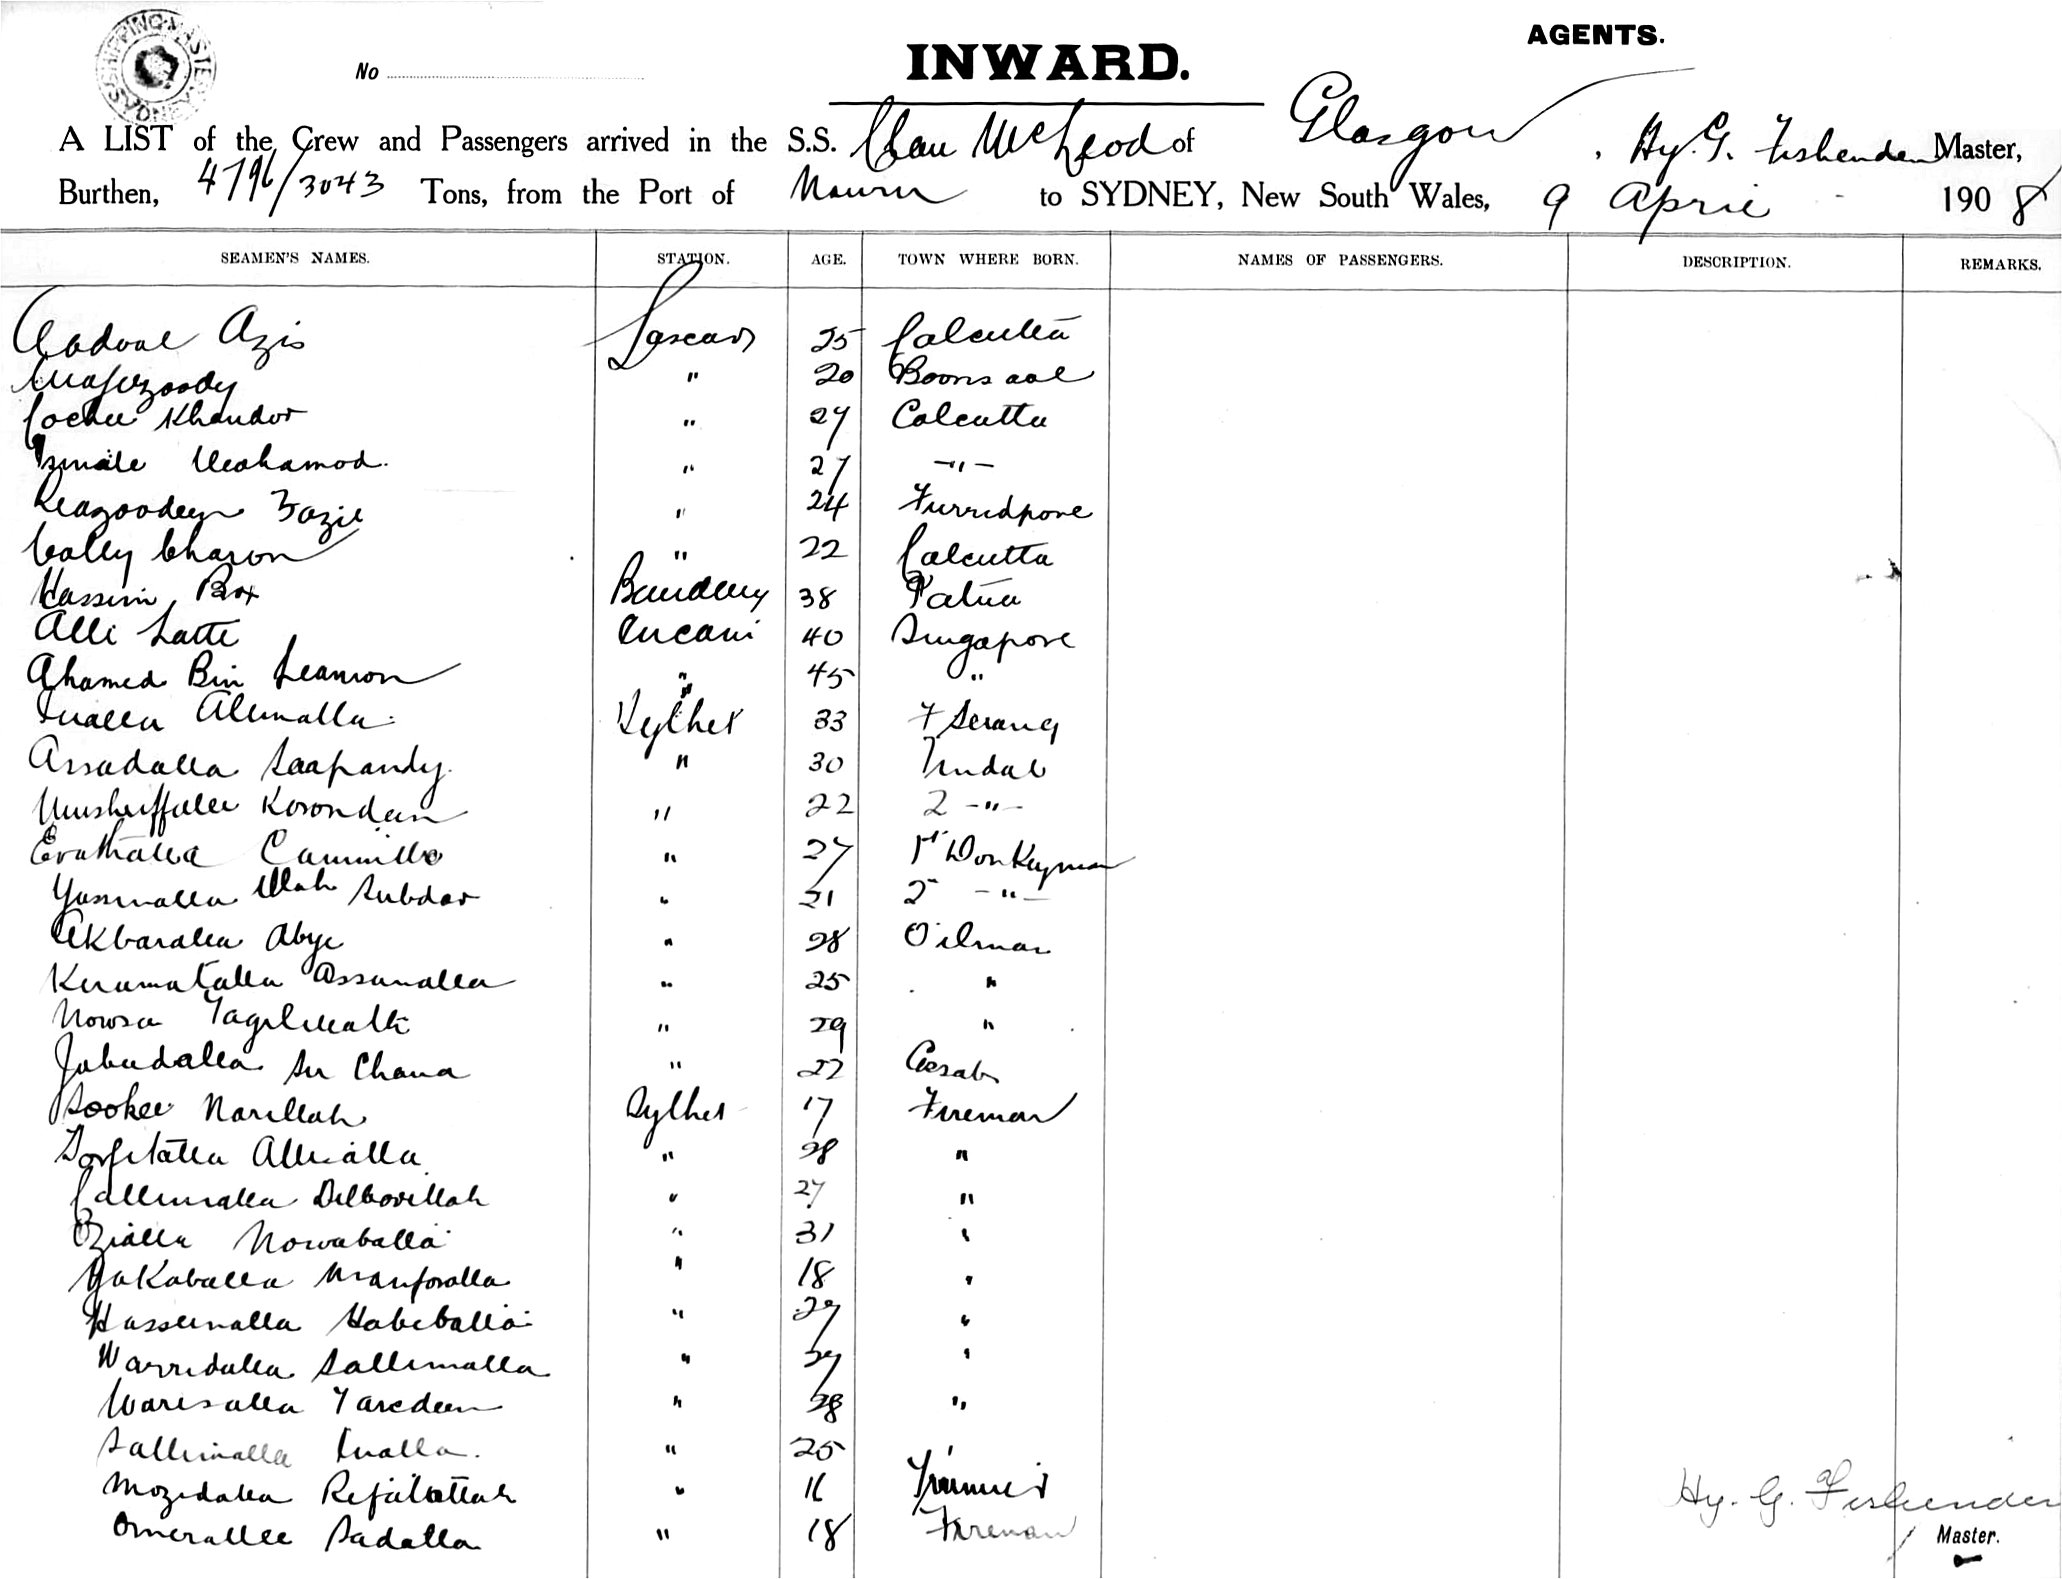 AGENTS.
No
INWARD.
A LIST of the Crew and Passengers arrived in the S.S. Clan McLeod of Glasgow, Hy. G. Fishenden Master,
Burthen, 4796/3043 Tons, from the Port of Nauru to SYDNEY, New South Wales, 9 April 1908
SEAMEN'S NAMES. STATION. AGE. TOWN WHERE BORN. NAMES OF PASSENGERS. DESCRIPTION. REMARKS.
Abdool Azis Lascars 25 Calcutta
" 20
Khandor " 27 Calcutta
Ismaile Mohamod. " 27 -"-
Reazoodeen Fazil " 24 Furridpore
Cally Charon " 22 Calcutta
Kassim Box Bandary 38 Patna
Alli Latte 40 Singapore
Ahamed Bin " 45 "
Allimalla Sylhet 33 F Serang
Assadalla " 30 Tindal
Musheffalla Korondeen " 22 2 -"-
" 27 1st Donkeyman
Yassinalla Ullah Subdar " 21 2 -"-
Akbaralla Abye " 28 Oilman
Keramatalla Assanalla " 25 "
Nowsa " 29 "
Jabudalla Su Chana " 22 Casab
Sookee Narillah Sylhet 17 Fireman
Allialla " 28 "
Callimalla " 27 "
Ozialla Nowaballa " 31 "
Yakaballa " 18 "
Hasseinalla Habiballa " 27 "
Warridalla Sallimalla " 27 "
Warisalla Taredeen " 28 "
Sallimalla " 25 "
Mozidalla " 16 Trimmer
Omerallee Sadalla " 18 Fireman
Hy. G. Fishenden
Master.